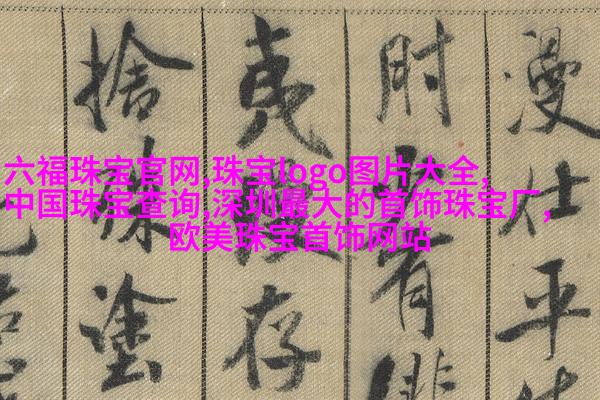 六福珠宝官网,珠宝logo图片大全,
中国珠宝查询,深圳最大的首饰珠宝厂,
欧美珠宝首饰网站
漫仕平
时有
夷存
捨殊塗